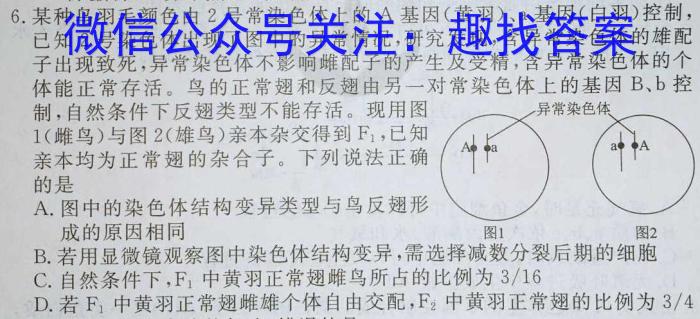 6.某种鸟羽毛颜色由2号常染色体上的A基因(黄羽)、a基因(白羽)控制,
已知
微信公众号关注：趣找答案
的雄配
子出现致死,异常染色体不影响雌配子的产生及受精,含异常染色体的个
体能正常存活。鸟的正常翅和反翅由另一对常染色体上的基因B、b控
制,自然条件下反翅类型不能存活。现用图
1(雌鸟)与图2(雄鸟)亲本杂交得到F₁,已知
亲本均为正常翅的杂合子。下列说法正确
的是
异常染色体
A a
a A
图1 图2
A.图中的染色体结构变异类型与鸟反翅形
成的原因相同
B.若用显微镜观察图中染色体结构变异,需选择减数分裂后期的细胞
C.自然条件下,F₁中黄羽正常翅雌鸟所占的比例为3/16
D.若F₁中黄羽正常翅雌雄个体自由交配,F₂中黄羽正常翅的比例为3/4